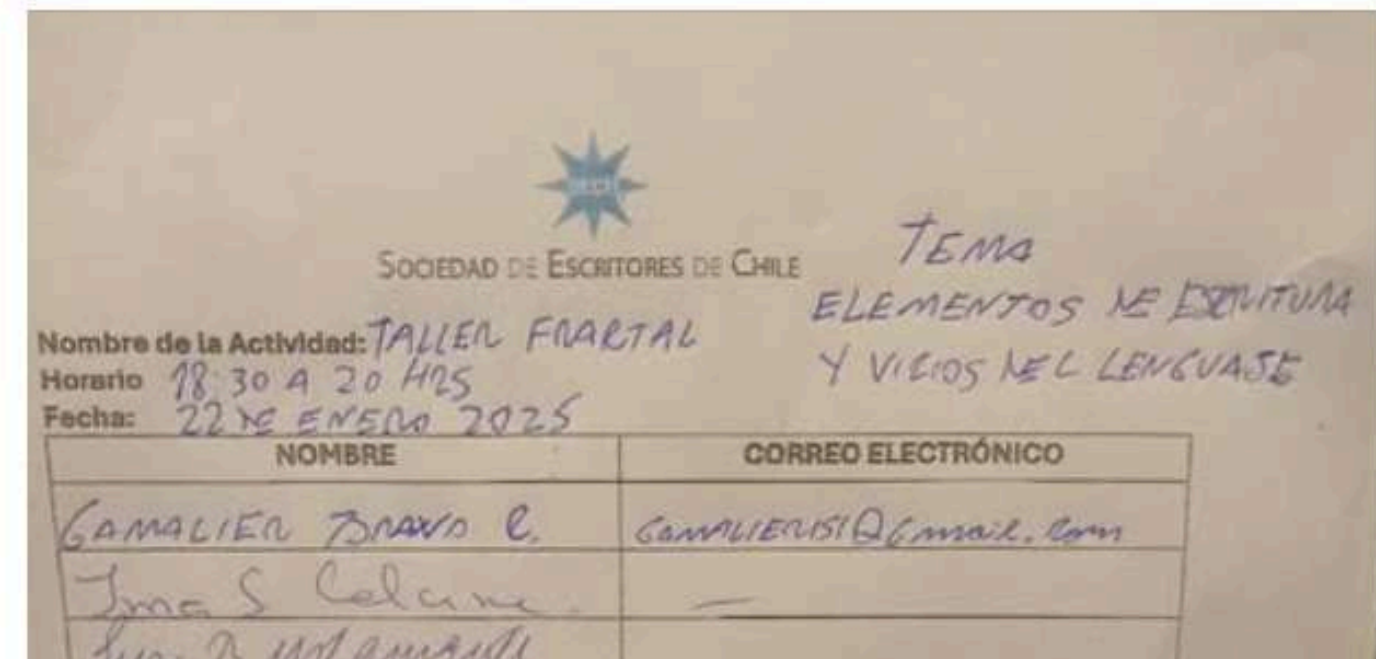 SOCIEDAD DE ESCRITORES DE CHILE
TEMA
ELEMENTOS DE ESCRITURA
Y VICIOS DEL LENGUAJE
Nombre de la Actividad: TALLER FRACTAL
Horario 18:30 A 20 HRS
Fecha: 22 DE ENERO 2025
NOMBRE CORREO ELECTRÓNICO
GAMALIER BRAVO C. @gmail.com
S —